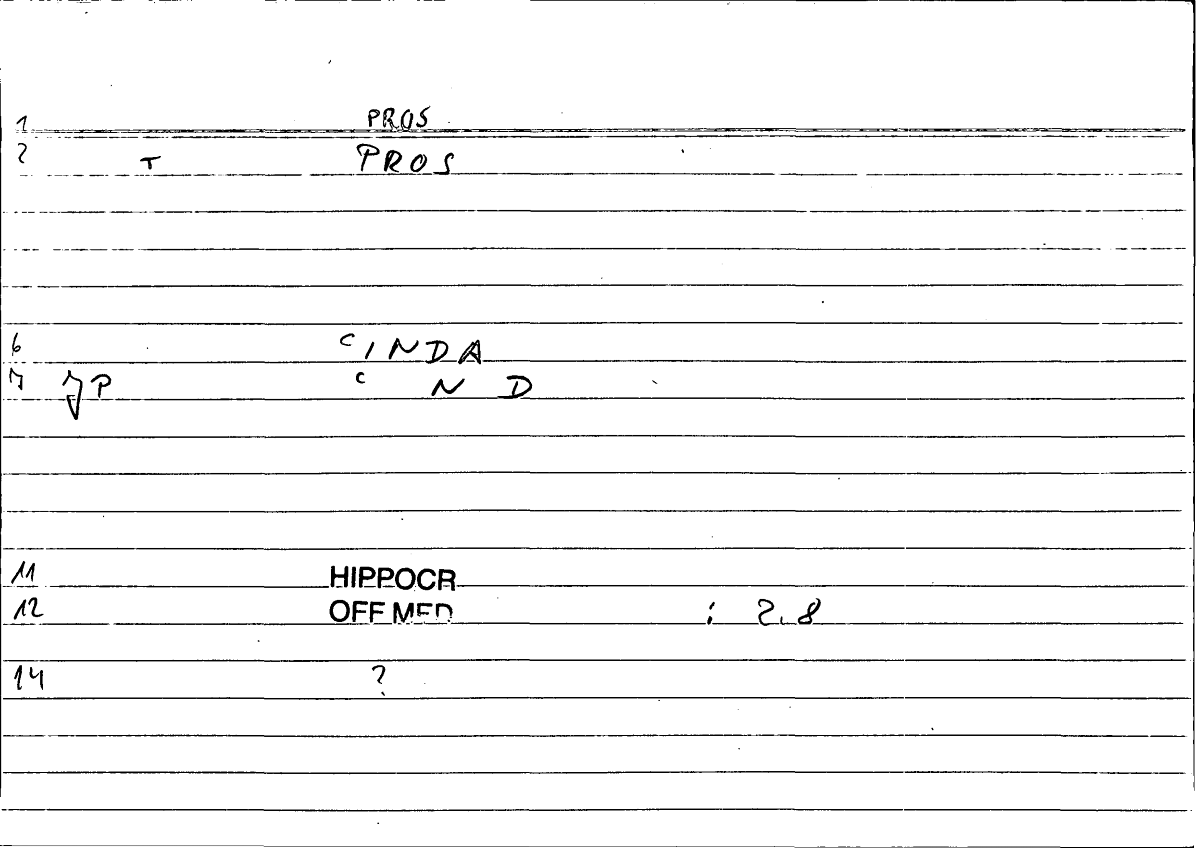 1 PROS
2 T PROS
6 C INDA
7 P C N D
11 HIPPOCR
12 OFF MED : 2.8
14 ?